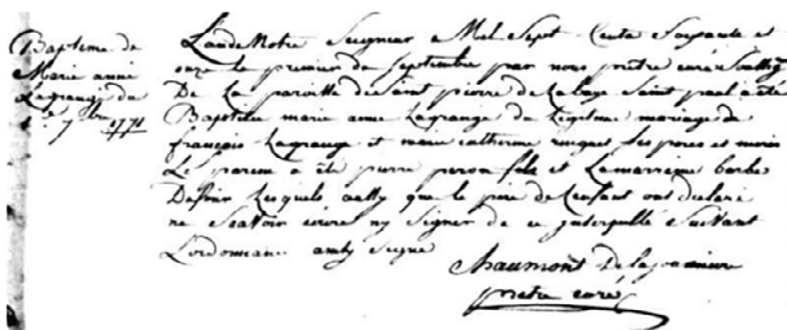 Baptême de
Marie anne
Lagrange du
1er 7bre 1771
L'an de Notre Seigneur Mil Sept Cents Soixante et
onze le premier de Septembre par nous prêtre curé Soussigné
De La paroisse de Saint pierre de La baye Saint paul a été
Baptisée marie anne Lagrange du Légitime mariage de
françois Lagrange et marie catherine Ses peres et meres
Le parein a été pierre peron fils et La marreine barbe
Dufour Lesquels aussy que le pere de L'enfant ont déclaré
ne Scavoir écrire ny Signer de ce interpellé Suivant
L'ordonnance Signé
Chaumont De la
prêtre curé